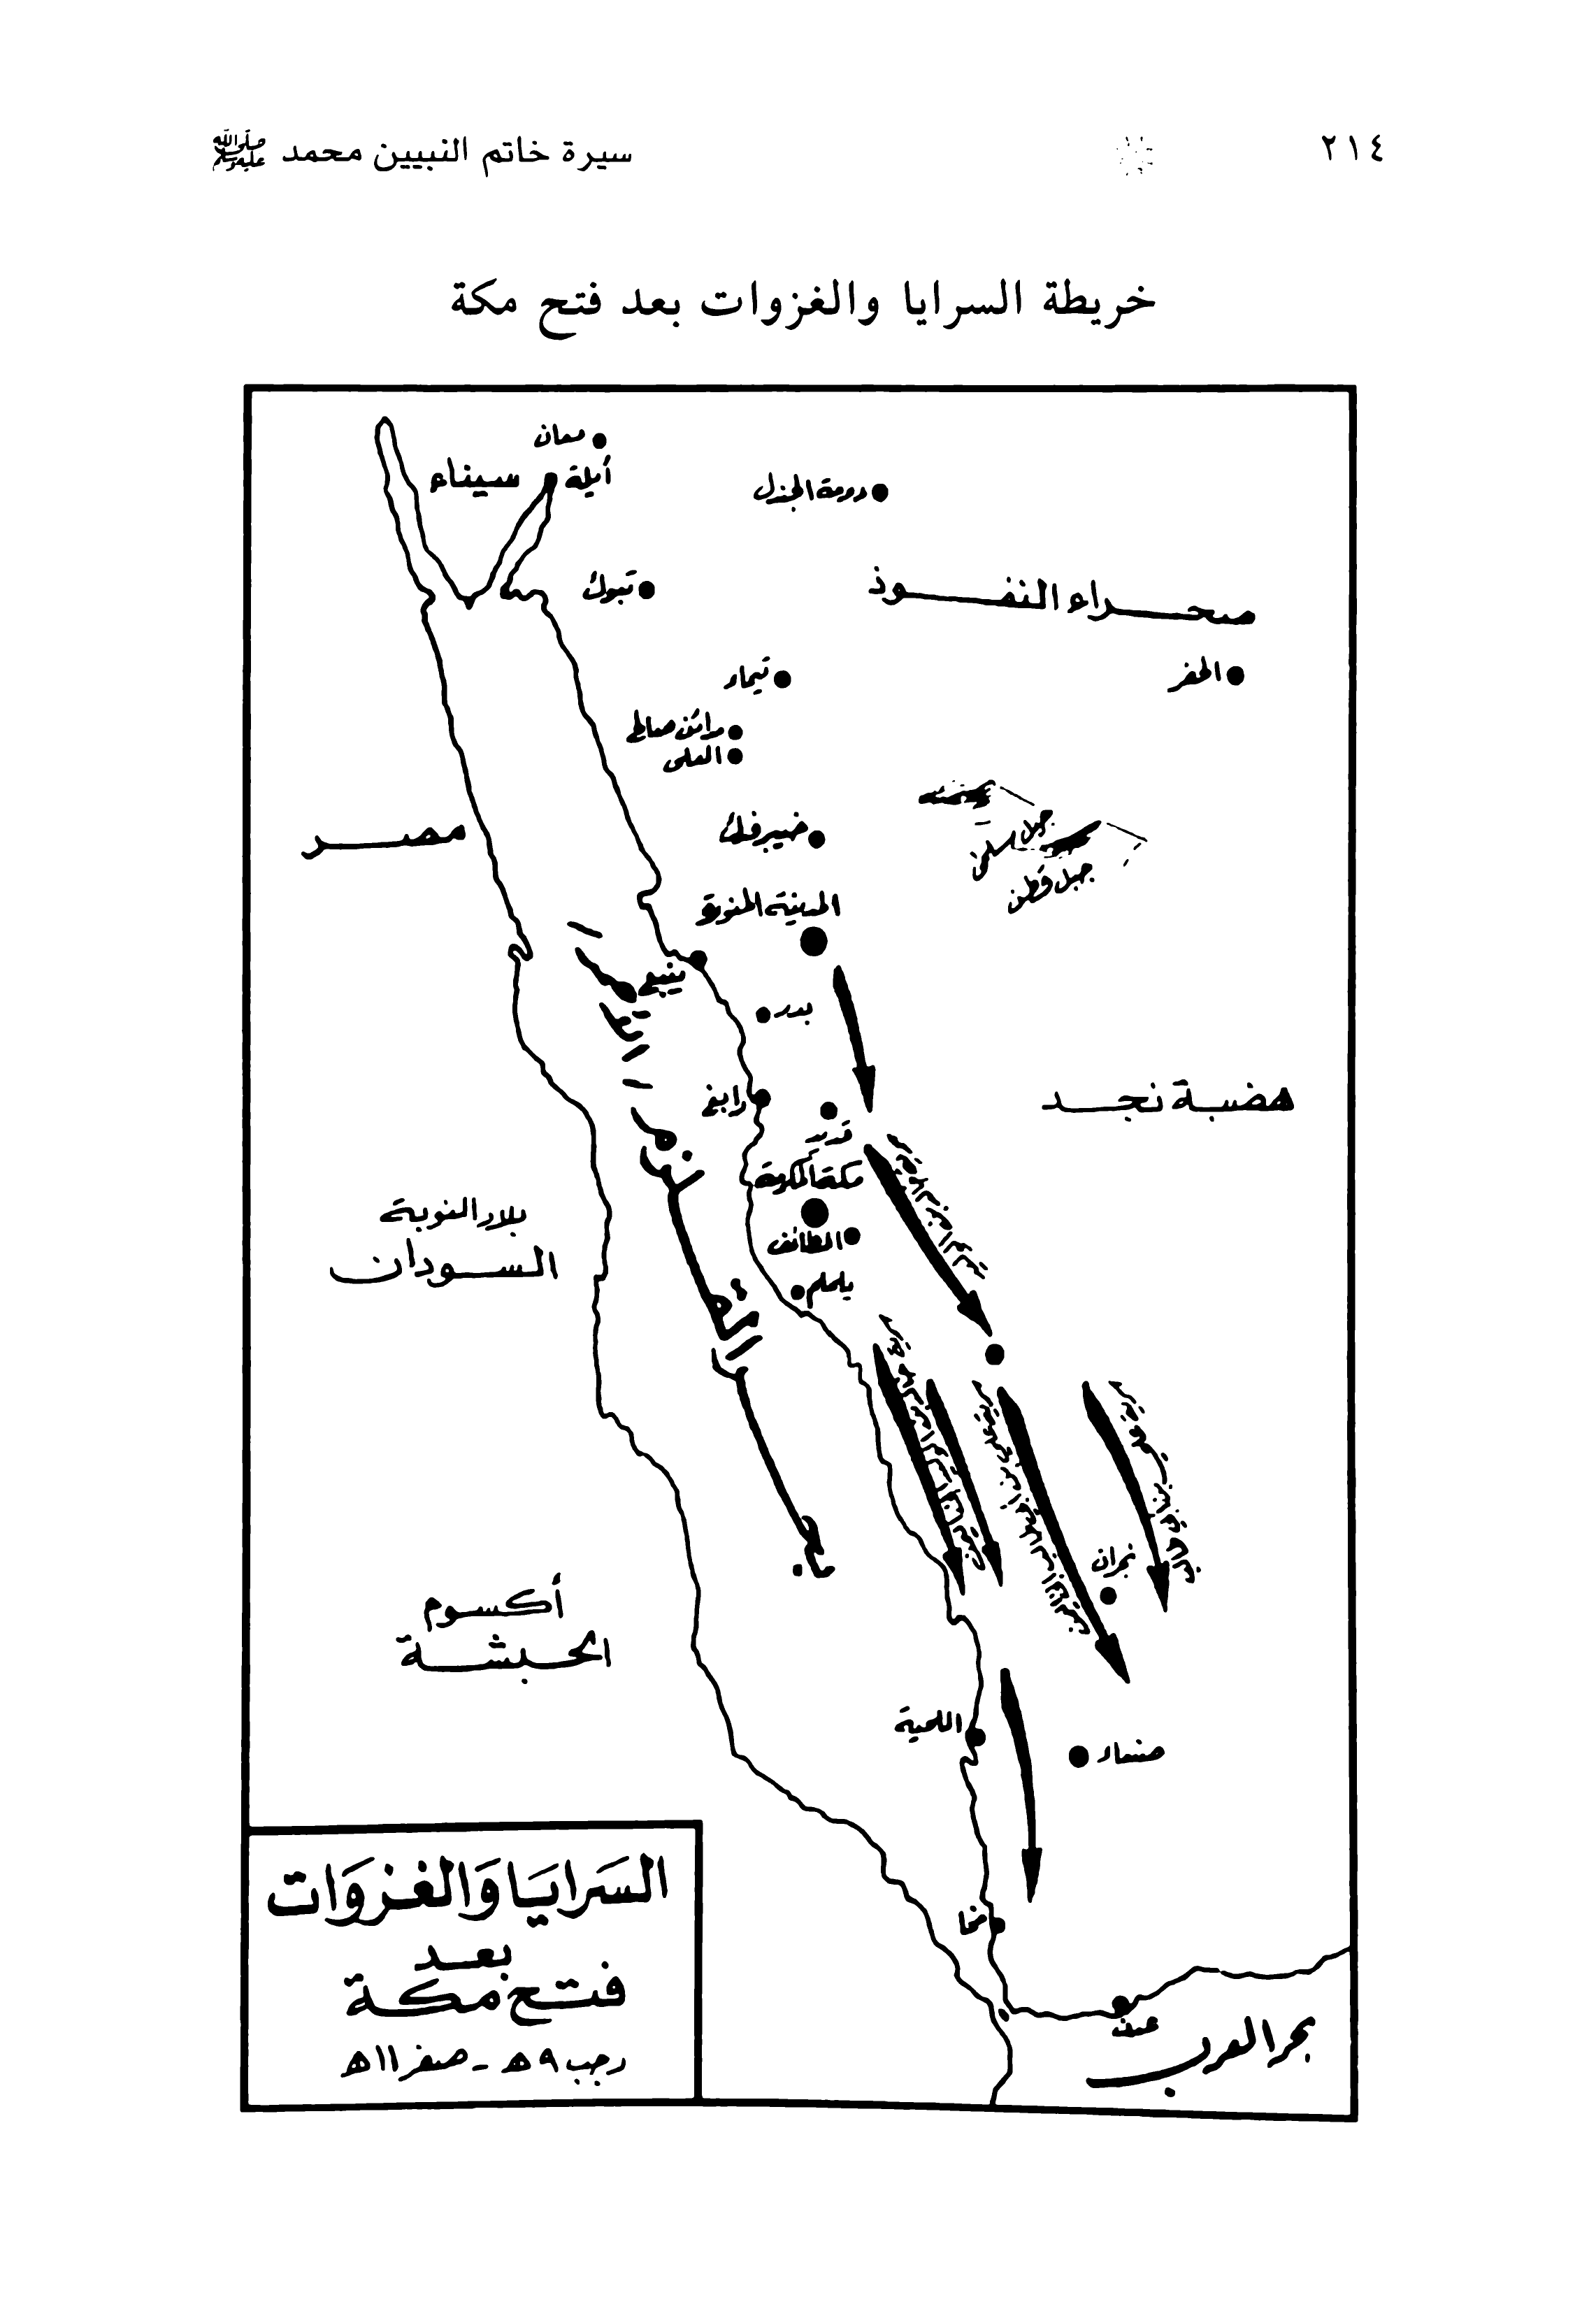 ٢١٤
سيرة خاتم النبيين محمد ﷺ
خريطة السرايا والغزوات بعد فتح مكة
معان
أيلة
سيناء
دومة الجندل
تبوك
صحراء النفوذ
تيماء
الحفر
مدائن صالح
العلى
خيبر فدك
مصر
جبل
جبل قطن
المدينة المنورة
ينبع
بدر
رابغ
هضبة نجد
قديد
مكة المكرمة
الطائف
يلملم
بلاد النوبة
السودان
نجران
أكسوم
الحبشة
اللحية
صنعاء
مخا
عدن
بحر العرب
السَرايَا وَالغزوَات
بعد
فتح مكة
رجب ٩هـ - صفر ١١هـ